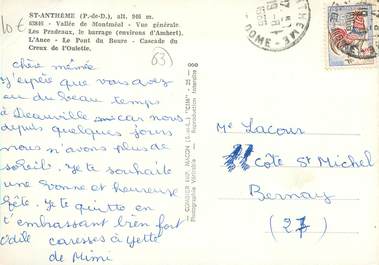 10€
ST-ANTHÊME (P.-de-D.), alt. 940 m.
63846 - Vallée de Montméal - Vue générale
Les Pradeaux, le barrage (environs d'Ambert).
L'Ance - Le Pont du Boure - Cascade du
Creux de l'Oulette.
63
chère mémée
J'espère que vous avez
eu du beau temps
à Deauville car nous
depuis quelques jours
nous n'avons plus de
soleil. Je te souhaite
une bonne et heureuse
fête. Je te quitte en
t'embrassant bien fort
Odile caresses à Yette
de Mimi
COMBIER IMP. MACON (S.-et-L.) "CIM"
Photographie Véritable - Reproduction Interdite
THÈME
DOME
Me Lacour
Côte St Michel
Bernay
(27)